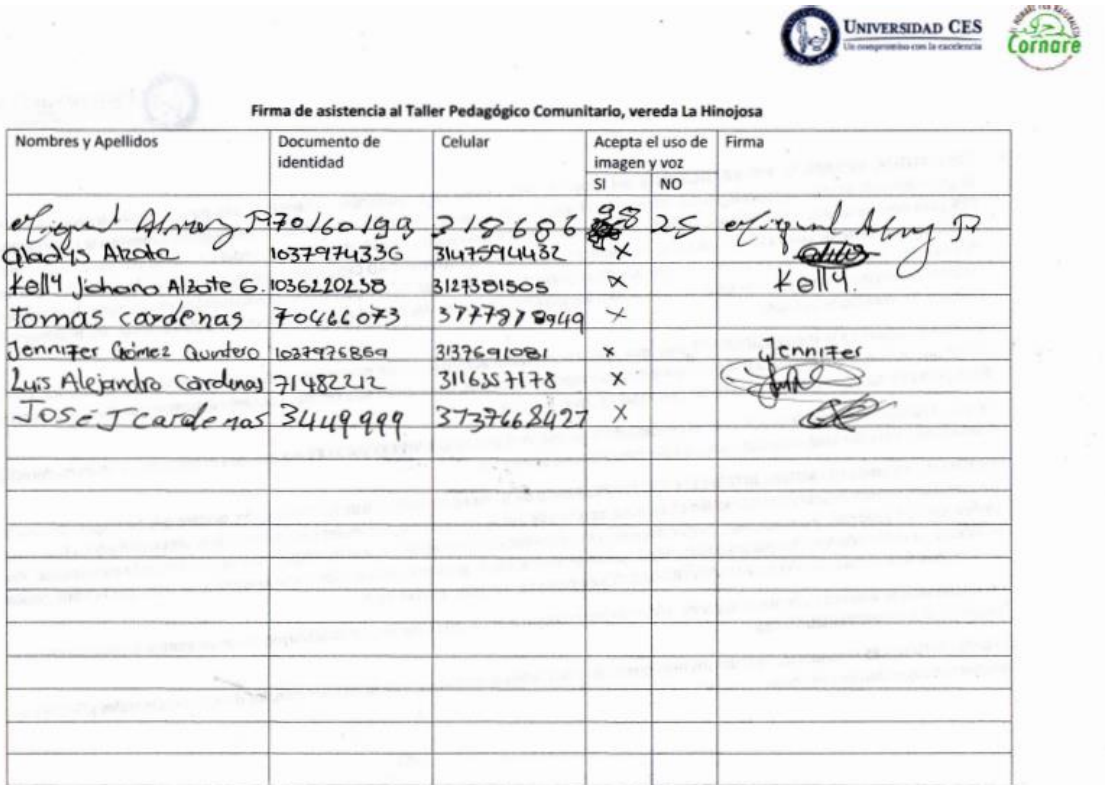 UNIVERSIDAD CES
Un compromiso con la excelencia
Cornare
Firma de asistencia al Taller Pedagógico Comunitario, vereda La Hinojosa
Nombres y Apellidos Documento de identidad Celular Acepta el uso de imagen y voz Firma
SI NO
Miguel 70160193 318686 98 25 Miguel
Gladys Alzate 1037974336 3147594432 X
Kelly Johana Alzate G. 1036220258 3127381505 X Kelly.
Tomas cardenas 70466073 3777878949 X
Jennifer Gómez Quintero 1037976869 3137691081 x Jennifer
Luis Alejandro Cardenas 71482212 3116357178 X
JOSE J Cardenas 3449999 3737668427 X